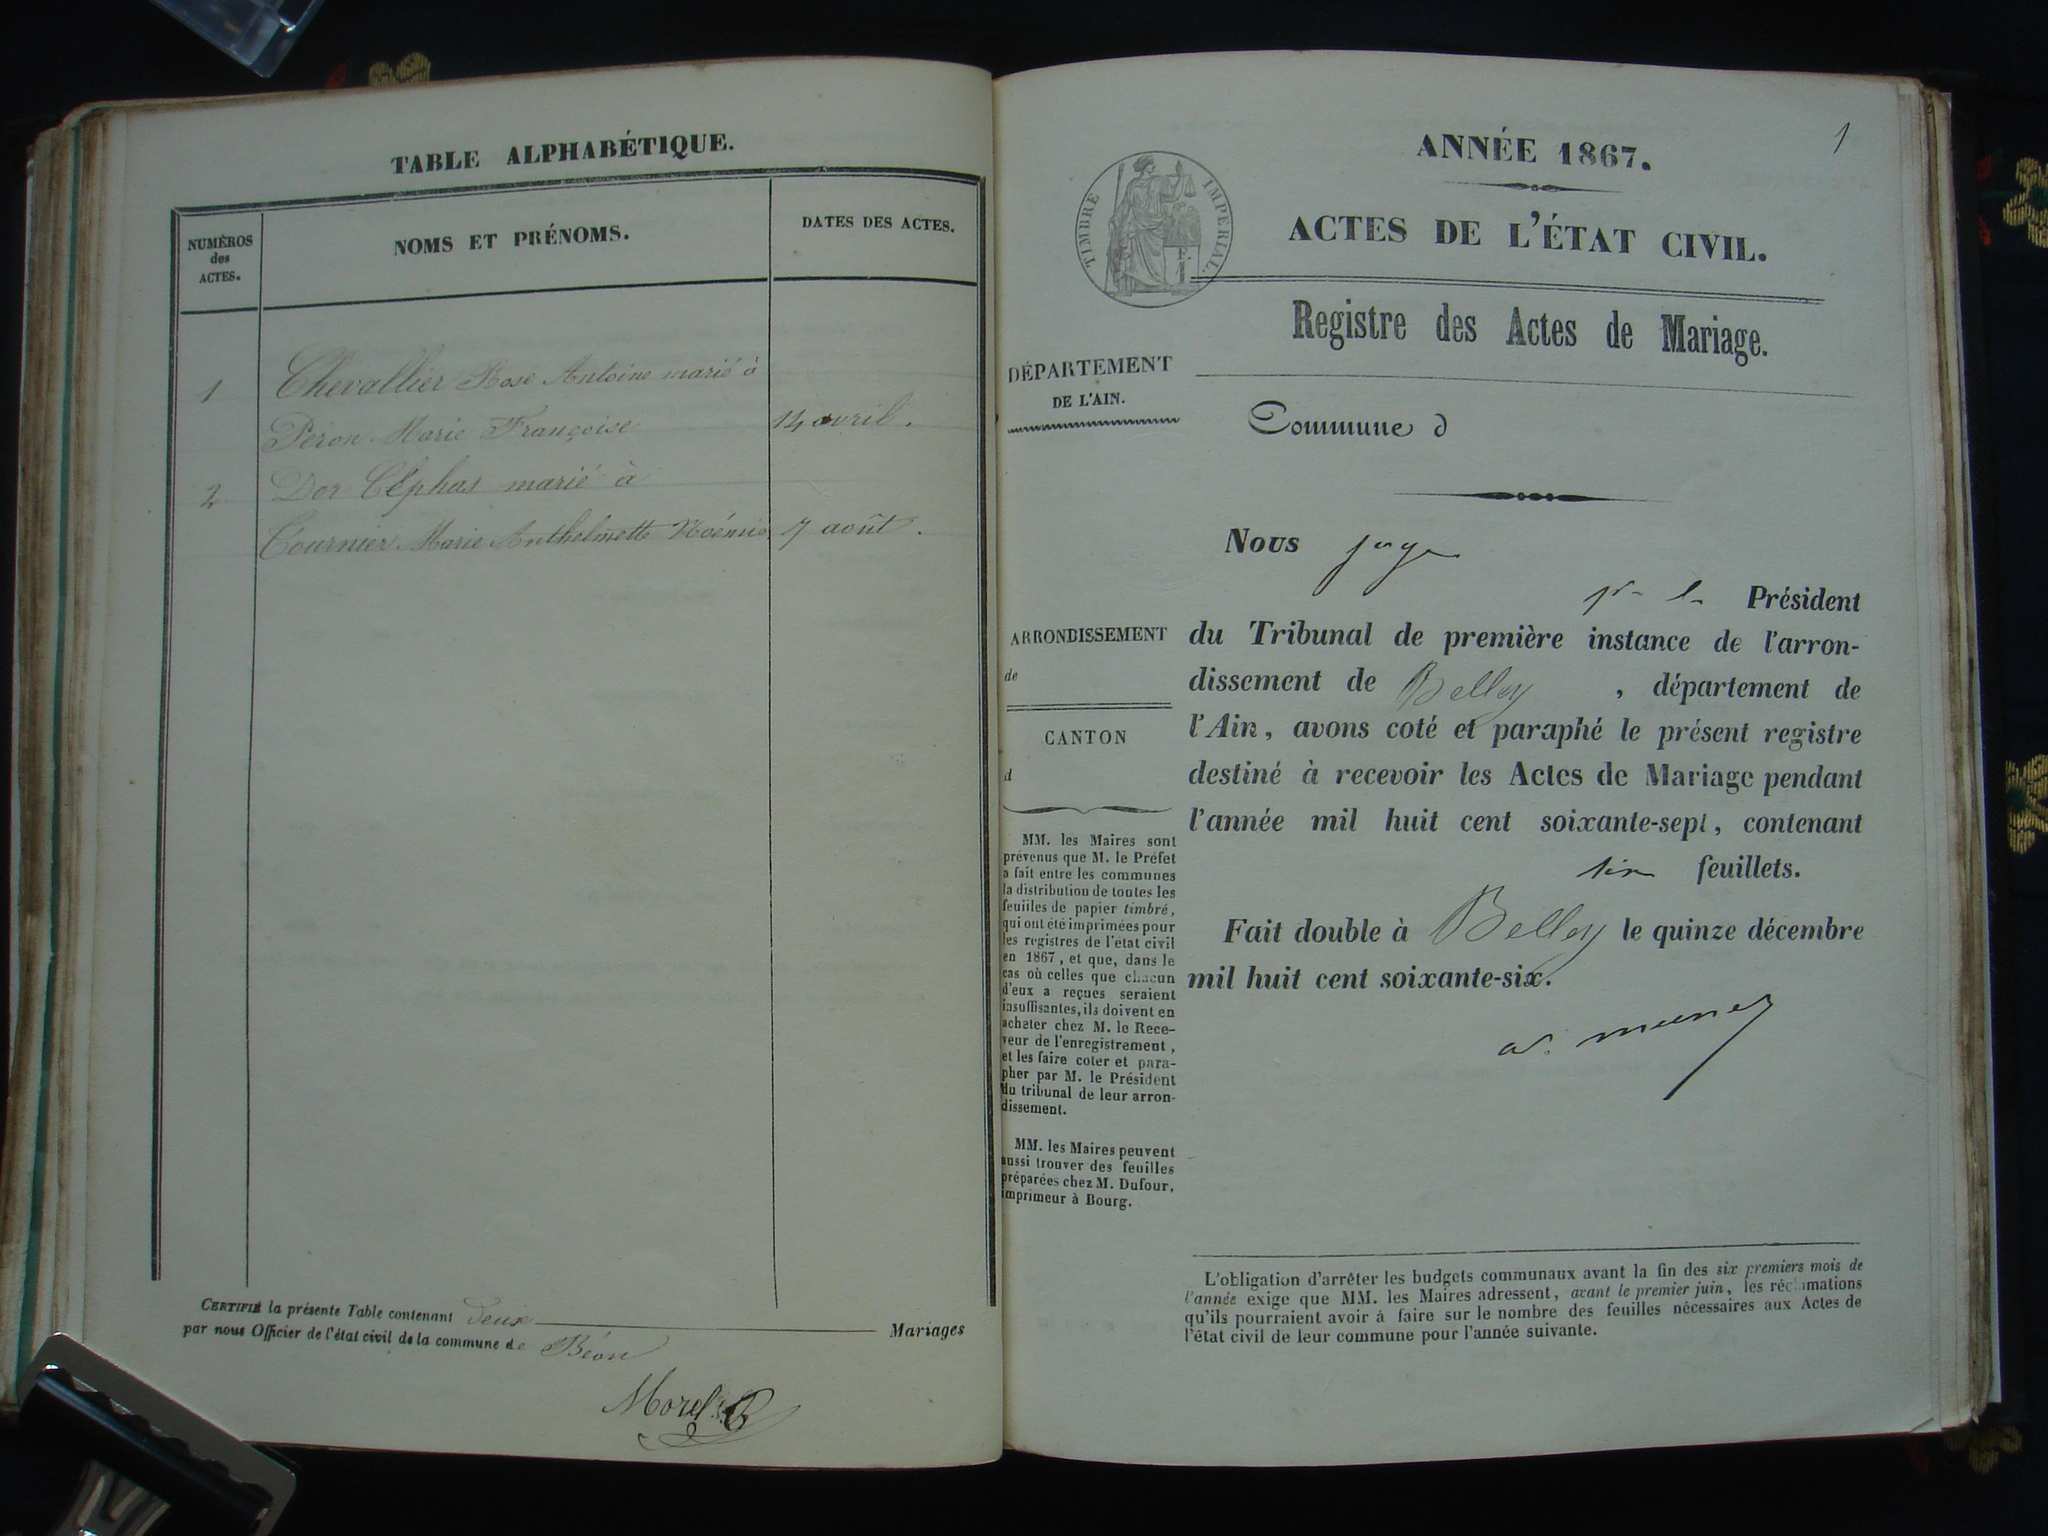 TABLE ALPHABÉTIQUE.
NUMÉROS
des
ACTES.
NOMS ET PRÉNOMS.
DATES DES ACTES.
1
Chevallier Rose Antoine marié à
Peron Marie Françoise
14 avril.
2
Dor Céphas marié à
Cournier Marie Anthelmette Noémie
7 août.
CERTIFIÉ la présente Table contenant deux Mariages
par nous Officier de l'état civil de la commune de Béon
Morel
1
ANNÉE 1867.
TIMBRE IMPERIAL.
F.
1
ACTES DE L'ÉTAT CIVIL.
Registre des Actes de Mariage.
DÉPARTEMENT
DE L'AIN.
Commune d
ARRONDISSEMENT
de
CANTON
d
MM. les Maires sont
prévenus que M. le Préfet
a fait entre les communes
la distribution de toutes les
feuilles de papier timbré,
qui ont été imprimées pour
les registres de l'état civil
en 1867, et que, dans le
cas où celles que chacun
d'eux a reçues seraient
insuffisantes, ils doivent en
acheter chez M. le Rece-
veur de l'enregistrement,
et les faire coter et para-
pher par M. le Président
du tribunal de leur arron-
dissement.
MM. les Maires peuvent
aussi trouver des feuilles
préparées chez M. Dufour,
imprimeur à Bourg.
Nous juge
pr le Président
du Tribunal de première instance de l'arron-
dissement de Belley, département de
l'Ain, avons coté et paraphé le présent registre
destiné à recevoir les Actes de Mariage pendant
l'année mil huit cent soixante-sept, contenant
six feuillets.
Fait double à Belley le quinze décembre
mil huit cent soixante-six.
L'obligation d'arrêter les budgets communaux avant la fin des six premiers mois de
l'année exige que MM. les Maires adressent, avant le premier juin, les réclamations
qu'ils pourraient avoir à faire sur le nombre des feuilles nécessaires aux Actes de
l'état civil de leur commune pour l'année suivante.